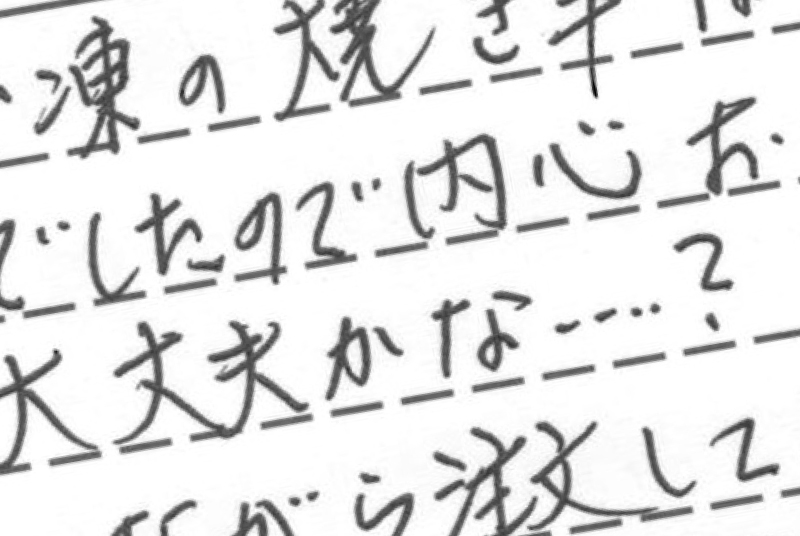 凍の焼き
でしたので内心お
大丈夫かな……?
がら注文して